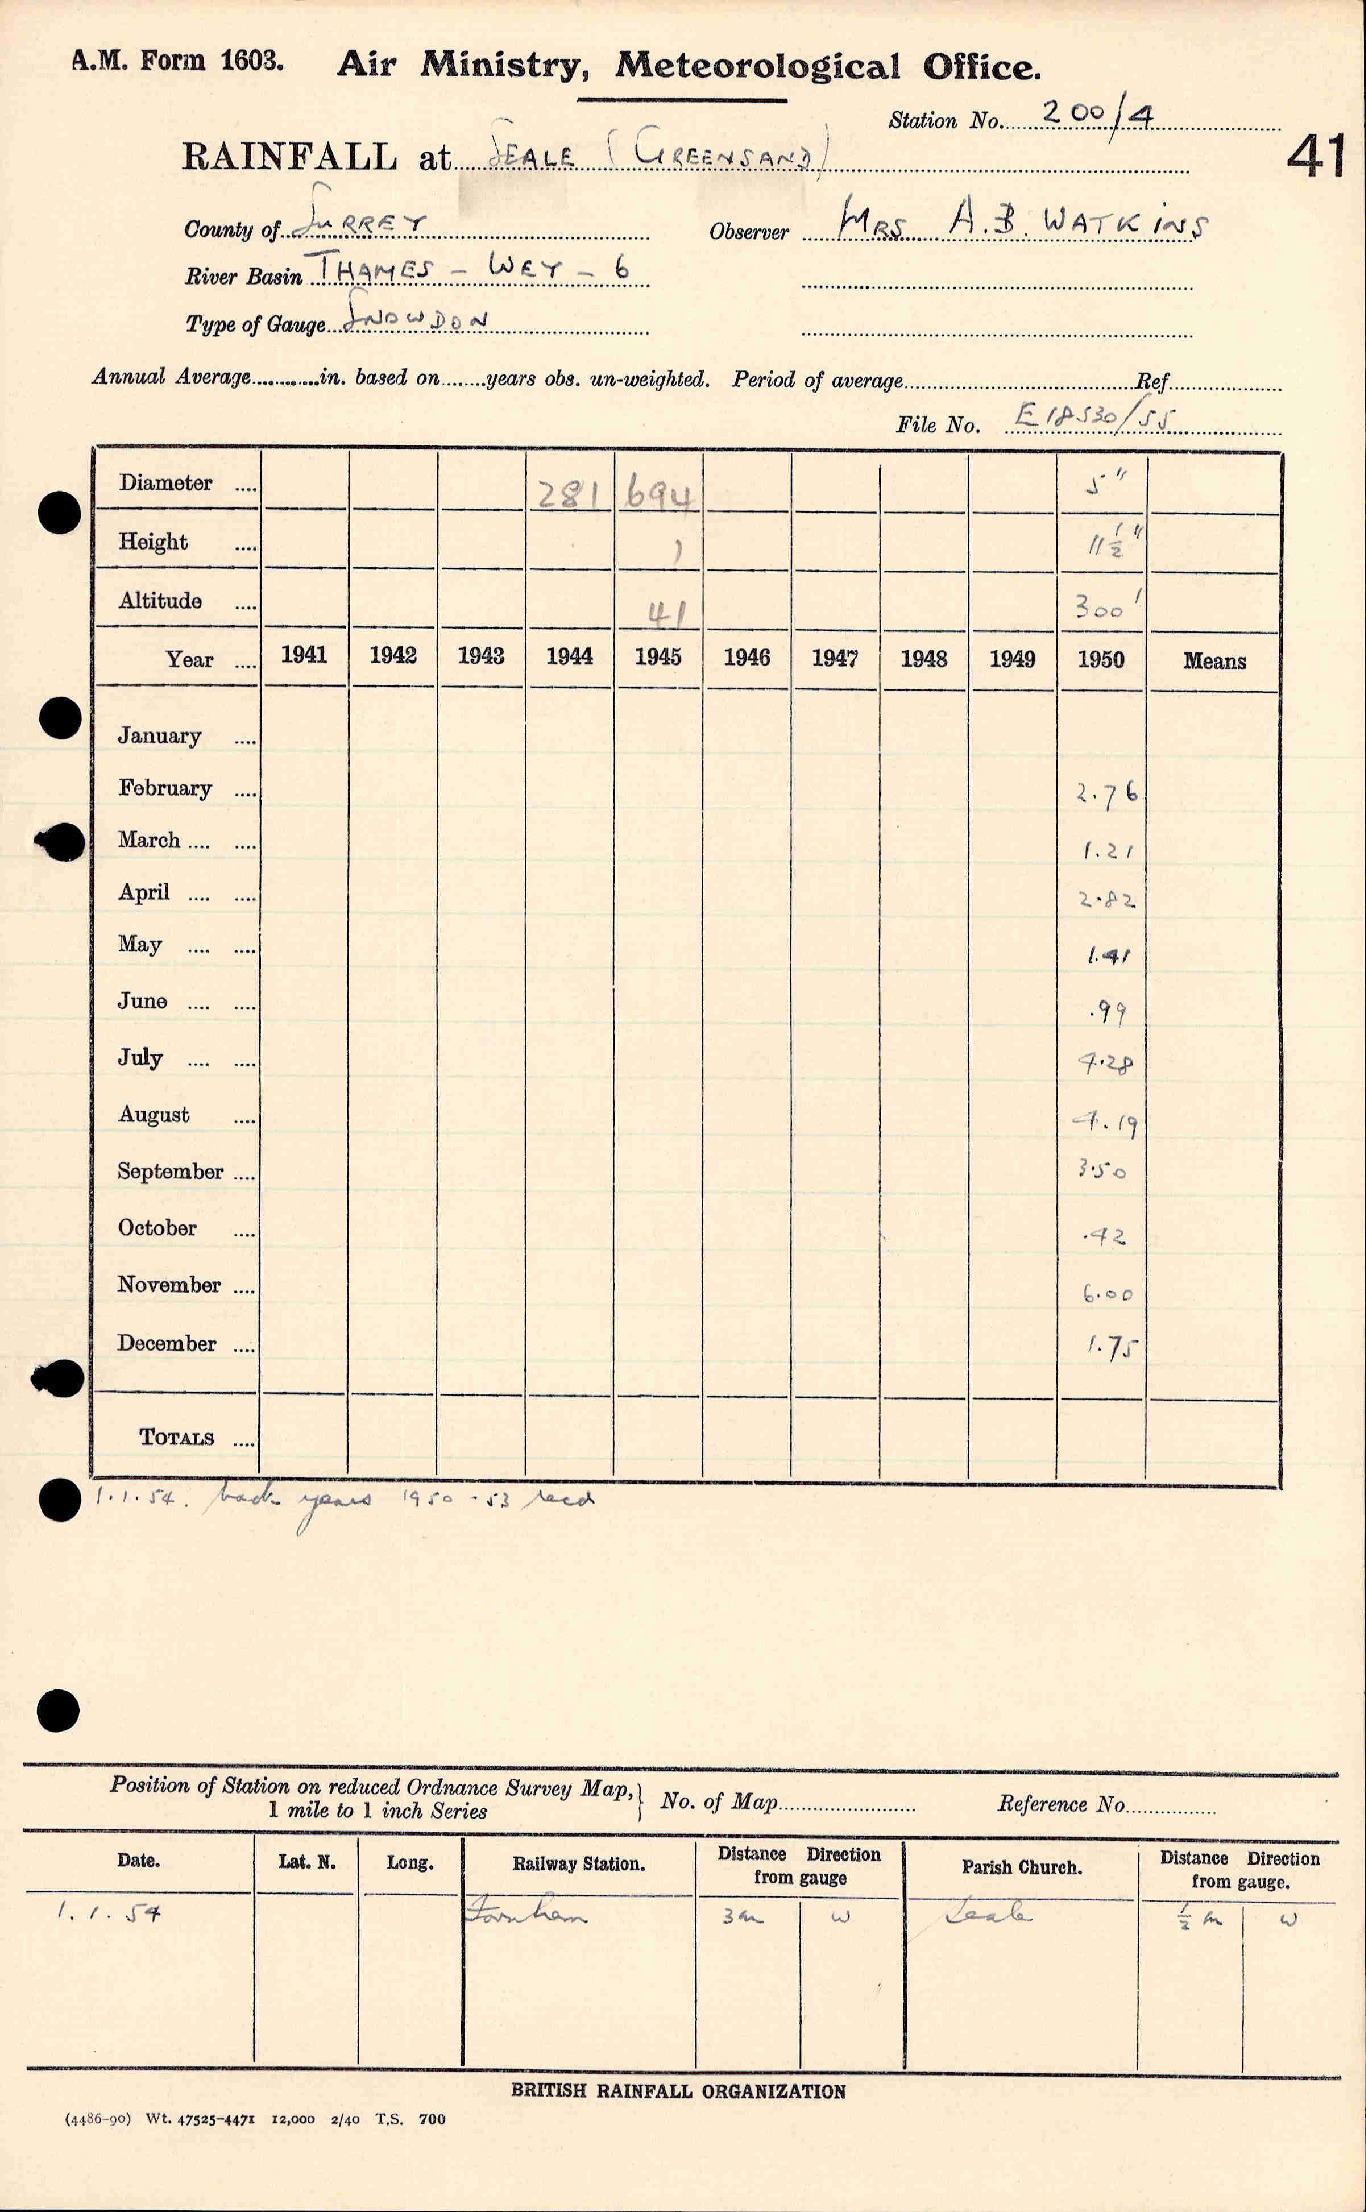 A.M. Form 1603. Air Ministry, Meteorological Office.
Station No. 200/4
41
RAINFALL at SEALE (GREENSAND)
County of SURREY Observer MRS A.B. WATKINS
River Basin THAMES - WEY - 6
Type of Gauge SNOWDON
Annual Average............in. based on........years obs. un-weighted. Period of average..........Ref..........
File No. E18530/55
Diameter .... 281 694 5"
Height .... 1 11½"
Altitude .... 41 300'
Year .... 1941 1942 1943 1944 1945 1946 1947 1948 1949 1950 Means
January ....
February .... 2.76
March .... .... 1.21
April .... .... 2.82
May .... .... 1.41
June .... .... .99
July .... .... 4.28
August .... 4.19
September .... 3.50
October .... .42
November .... 6.00
December .... 1.75
TOTALS ....
1.1.54. back years 1950-53 recd
Position of Station on reduced Ordnance Survey Map, } No. of Map.......... Reference No..........
1 mile to 1 inch Series
Date. Lat. N. Long. Railway Station. Distance Direction from gauge Parish Church. Distance Direction from gauge.
1.1.54 Farnham 3m W Seale ½m W
BRITISH RAINFALL ORGANIZATION
(4486-90) Wt. 47525-4471 12,000 2/40 T.S. 700